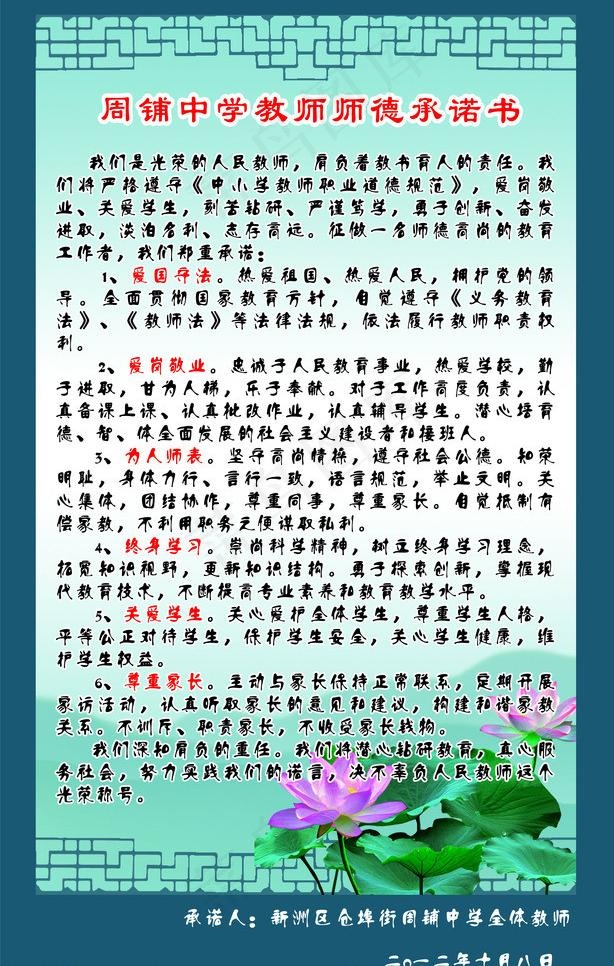 周铺中学教师师德承诺书
我们是光荣的人民教师，肩负着教书育人的责任。我
们将严格遵守《中小学教师职业道德规范》，爱岗敬
业、关爱学生，刻苦钻研、严谨笃学，勇于创新、奋发
进取，淡泊名利、志存高远。征做一名师德高尚的教育
工作者，我们郑重承诺：
1、爱国守法。热爱祖国、热爱人民，拥护党的领
导。全面贯彻国家教育方针，自觉遵守《义务教育
法》、《教师法》等法律法规，依法履行教师职责权
利。
2、爱岗敬业。忠诚于人民教育事业，热爱学校，勤
于进取，甘为人梯，乐于奉献。对于工作高度负责，认
真备课上课、认真批改作业，认真辅导学生。潜心培育
德、智、体全面发展的社会主义建设者和接班人。
3、为人师表。坚守高尚情操，遵守社会公德。知荣
明耻，身体力行、言行一致，语言规范，举止文明。关
心集体，团结协作，尊重同事，尊重家长。自觉抵制有
偿家教，不利用职务之便谋取私利。
4、终身学习。崇尚科学精神，树立终身学习理念，
拓宽知识视野，更新知识结构。勇于探索创新，掌握现
代教育技术，不断提高专业素养和教育教学水平。
5、关爱学生。关心爱护全体学生，尊重学生人格，
平等公正对待学生，保护学生安全，关心学生健康，维
护学生权益。
6、尊重家长。主动与家长保持正常联系，定期开展
家访活动，认真听取家长的意见和建议，构建和谐家教
关系。不训斥、职责家长，不收受家长钱物。
我们深知肩负的重任。我们将潜心钻研教育，真心服
务社会，努力实践我们的诺言，决不辜负人民教师这个
光荣称号。
承诺人：新洲区仓埠街周铺中学全体教师
二〇一二年十月八日